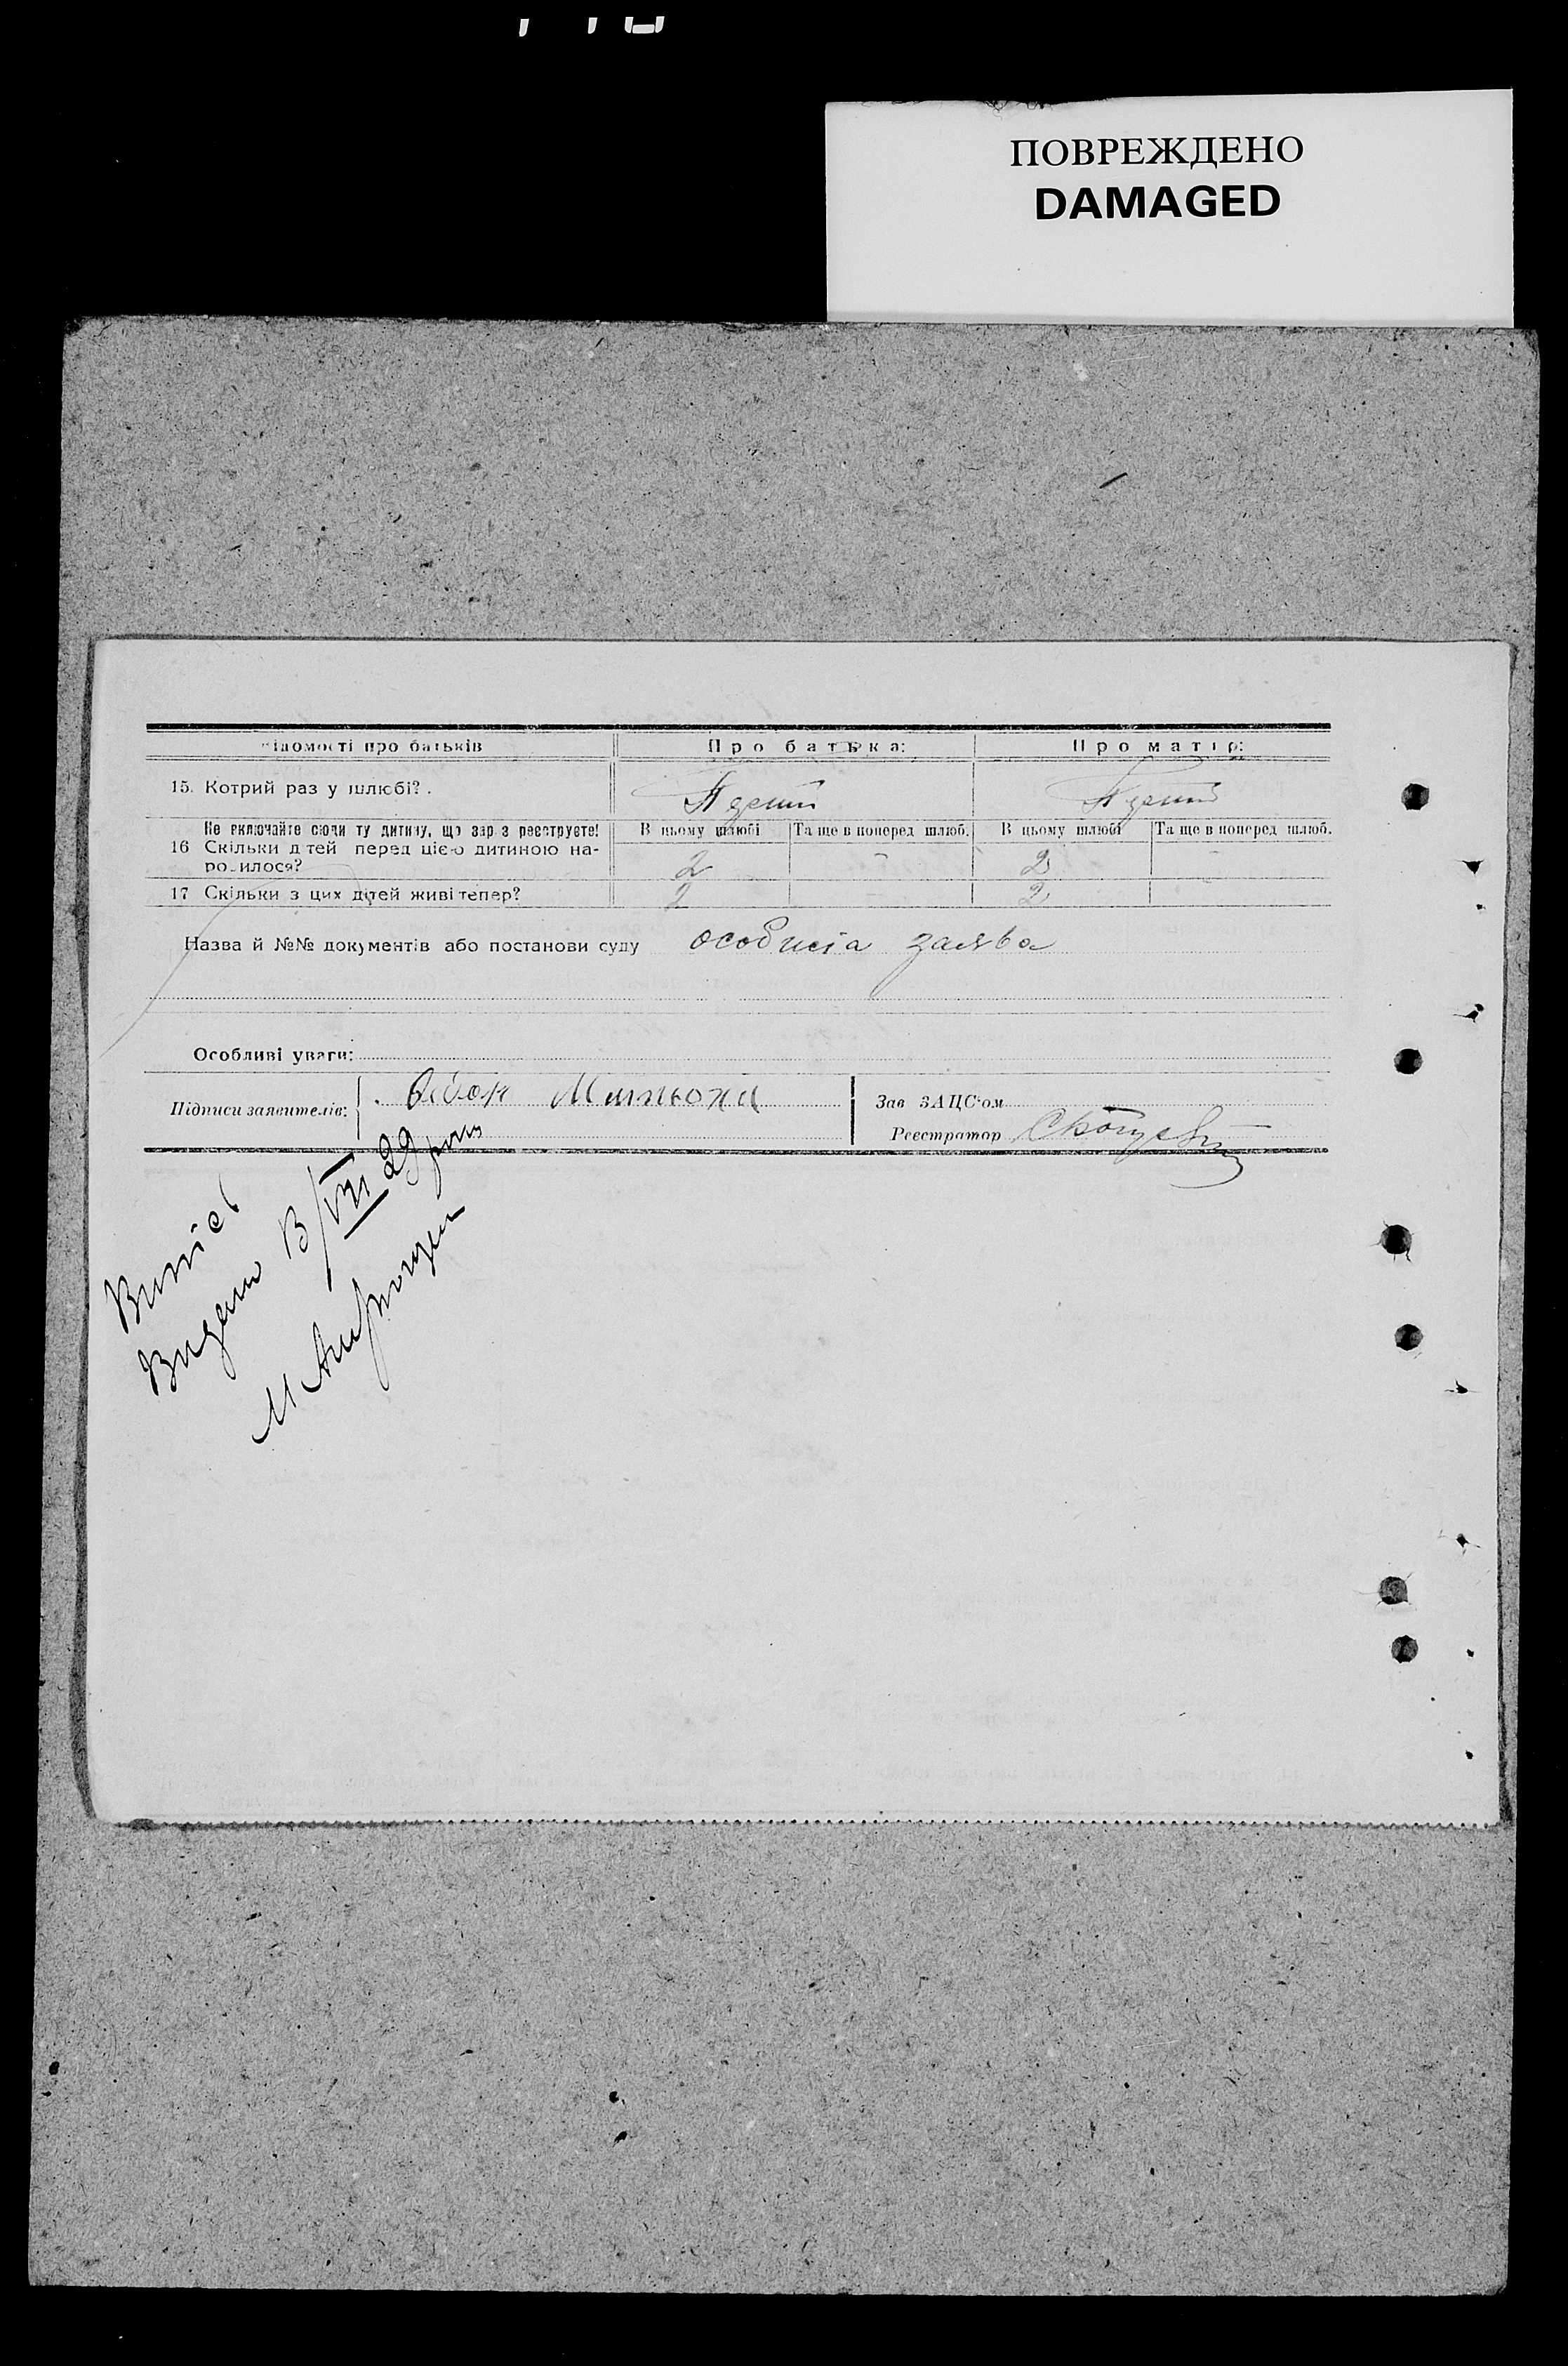 ПОВРЕЖДЕНО
DAMAGED
відомості про батьків Про батька: Про матір:
15. Котрий раз у шлюбі?. Перший Перший
Не включайте сюди ту дитину, що зараз реєструєте! В цьому шлюбі Та ще в поперед шлюб. В цьому шлюбі Та ще в поперед шлюб.
16 Скільки дітей перед цією дитиною на-
родилося? 2 - 2 -
17 Скільки з цих дітей живі тепер? 2 - 2
Назва й №№ документів або постанови суду особиста заява
Особливі уваги:
Підписи заявителів: Мильона
Зав ЗАЦС'ом
Реєстратор
Витяг
Видано В/VII 29 року